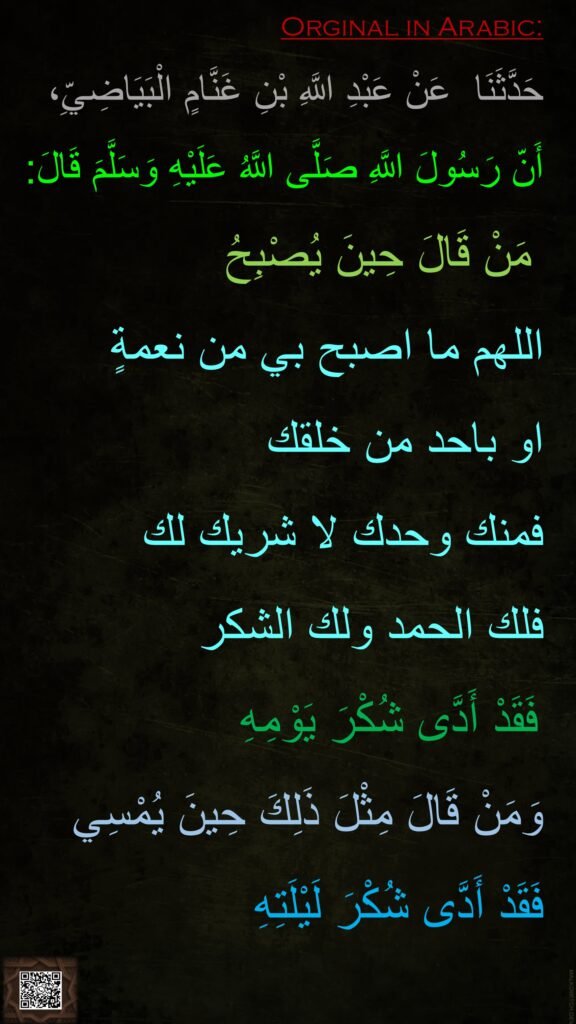 Orginal in Arabic:
حَدَّثَنَا عَنْ عَبْدِ اللَّهِ بْنِ غَنَّامٍ الْبَيَاضِيِّ،
أَنّ رَسُولَ اللَّهِ صَلَّى اللَّهُ عَلَيْهِ وَسَلَّمَ قَالَ:
مَنْ قَالَ حِينَ يُصْبِحُ
اللهم ما اصبح بي من نعمةٍ
او باحد من خلقك
فمنك وحدك لا شريك لك
فلك الحمد ولك الشكر
فَقَدْ أَدَّى شُكْرَ يَوْمِهِ
وَمَنْ قَالَ مِثْلَ ذَلِكَ حِينَ يُمْسِي
فَقَدْ أَدَّى شُكْرَ لَيْلَتِهِ